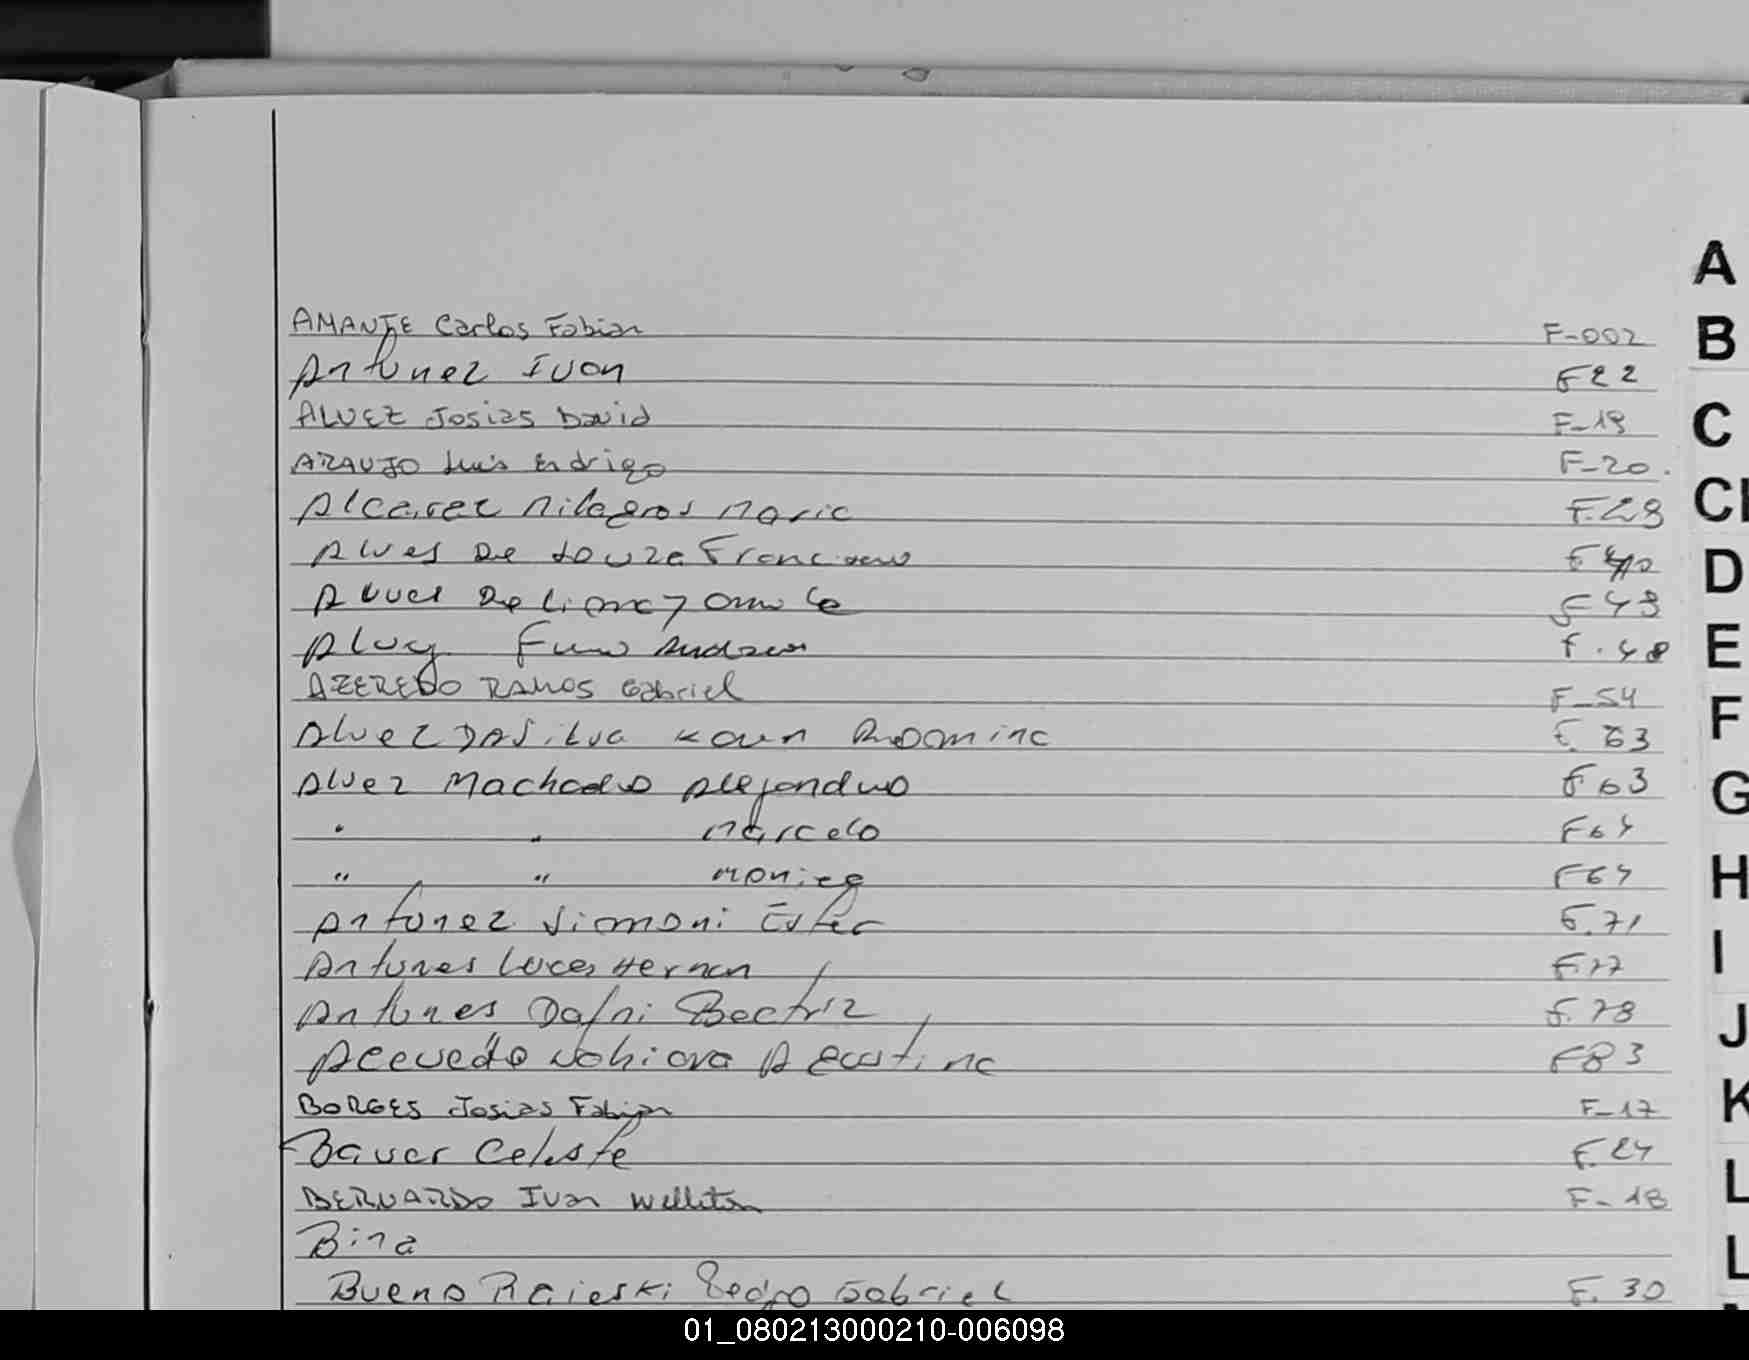 AMANTE Carlos Fabian F-002
Antunez Ivon F22
ALVEZ Josias David F-19
ARAUJO Luis Endrigo F-20.
Alcarez Milagros Maric F.29
Alves De Souza F40
Alves De F49
F.48
AZEREDO RAMOS Gabriel F-54
Alvez DA Silva Romina F.63
Alvez Machado Alejandro F63
" " Marcelo F64
" " Monica F64
Antunez Simoni Ester F.71
Antunes Luces Hernan F.77
Antunes Dafni Beatriz F.78
Acevedo Agustina F83
BORGES Josias Fabian F-17
Bauer Celeste F.24
BERNARDO Ivan Welliton F-18
Bina
Bueno Raieski Pedro Gabriel F.30
A
B
C
D
E
F
G
H
I
J
K
L
L
01_080213000210-006098